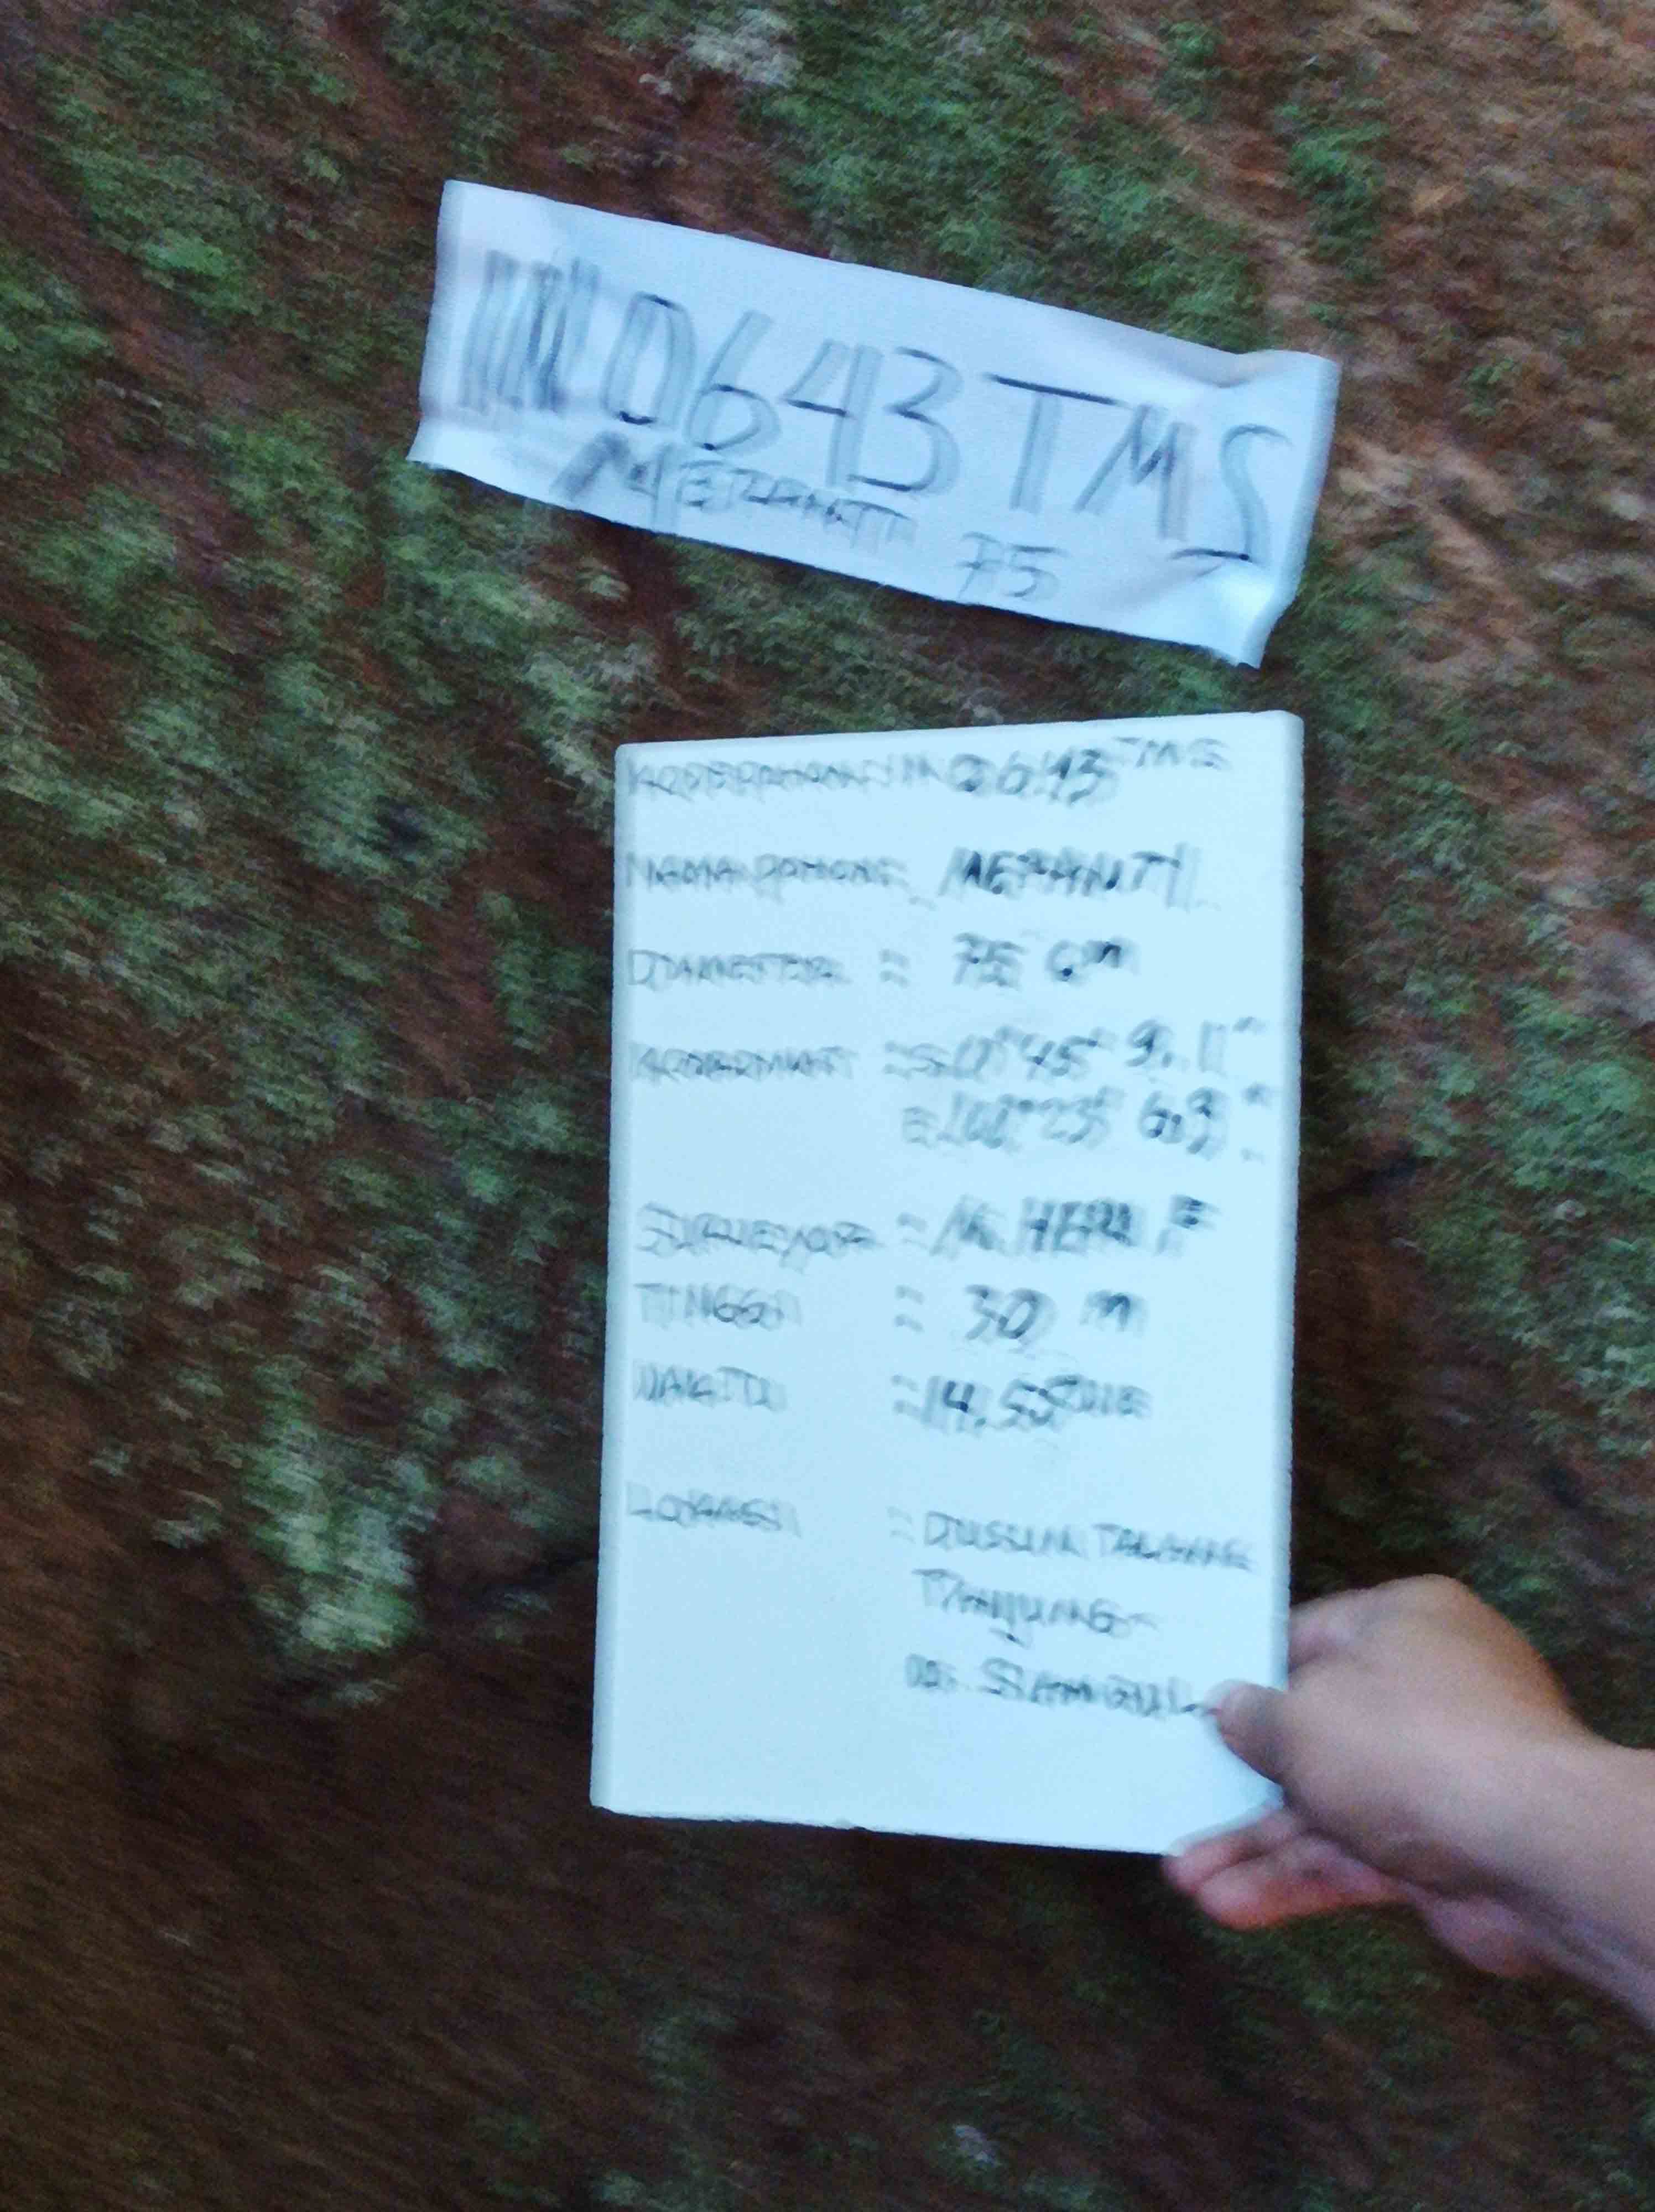 0643 TMS
MERANTI
75
KODE POHON : IIN 0643 TMS
NAMA POHON : MERANTI
DIAMETER : 75 cm
KOORDINAT : S 0° 45'
E 23' 6.3"
SURVEYOR : M. HERI F
TINGGI : 30 m
WAKTU : 14.55
LOKASI : DUSUN
TANJUNG